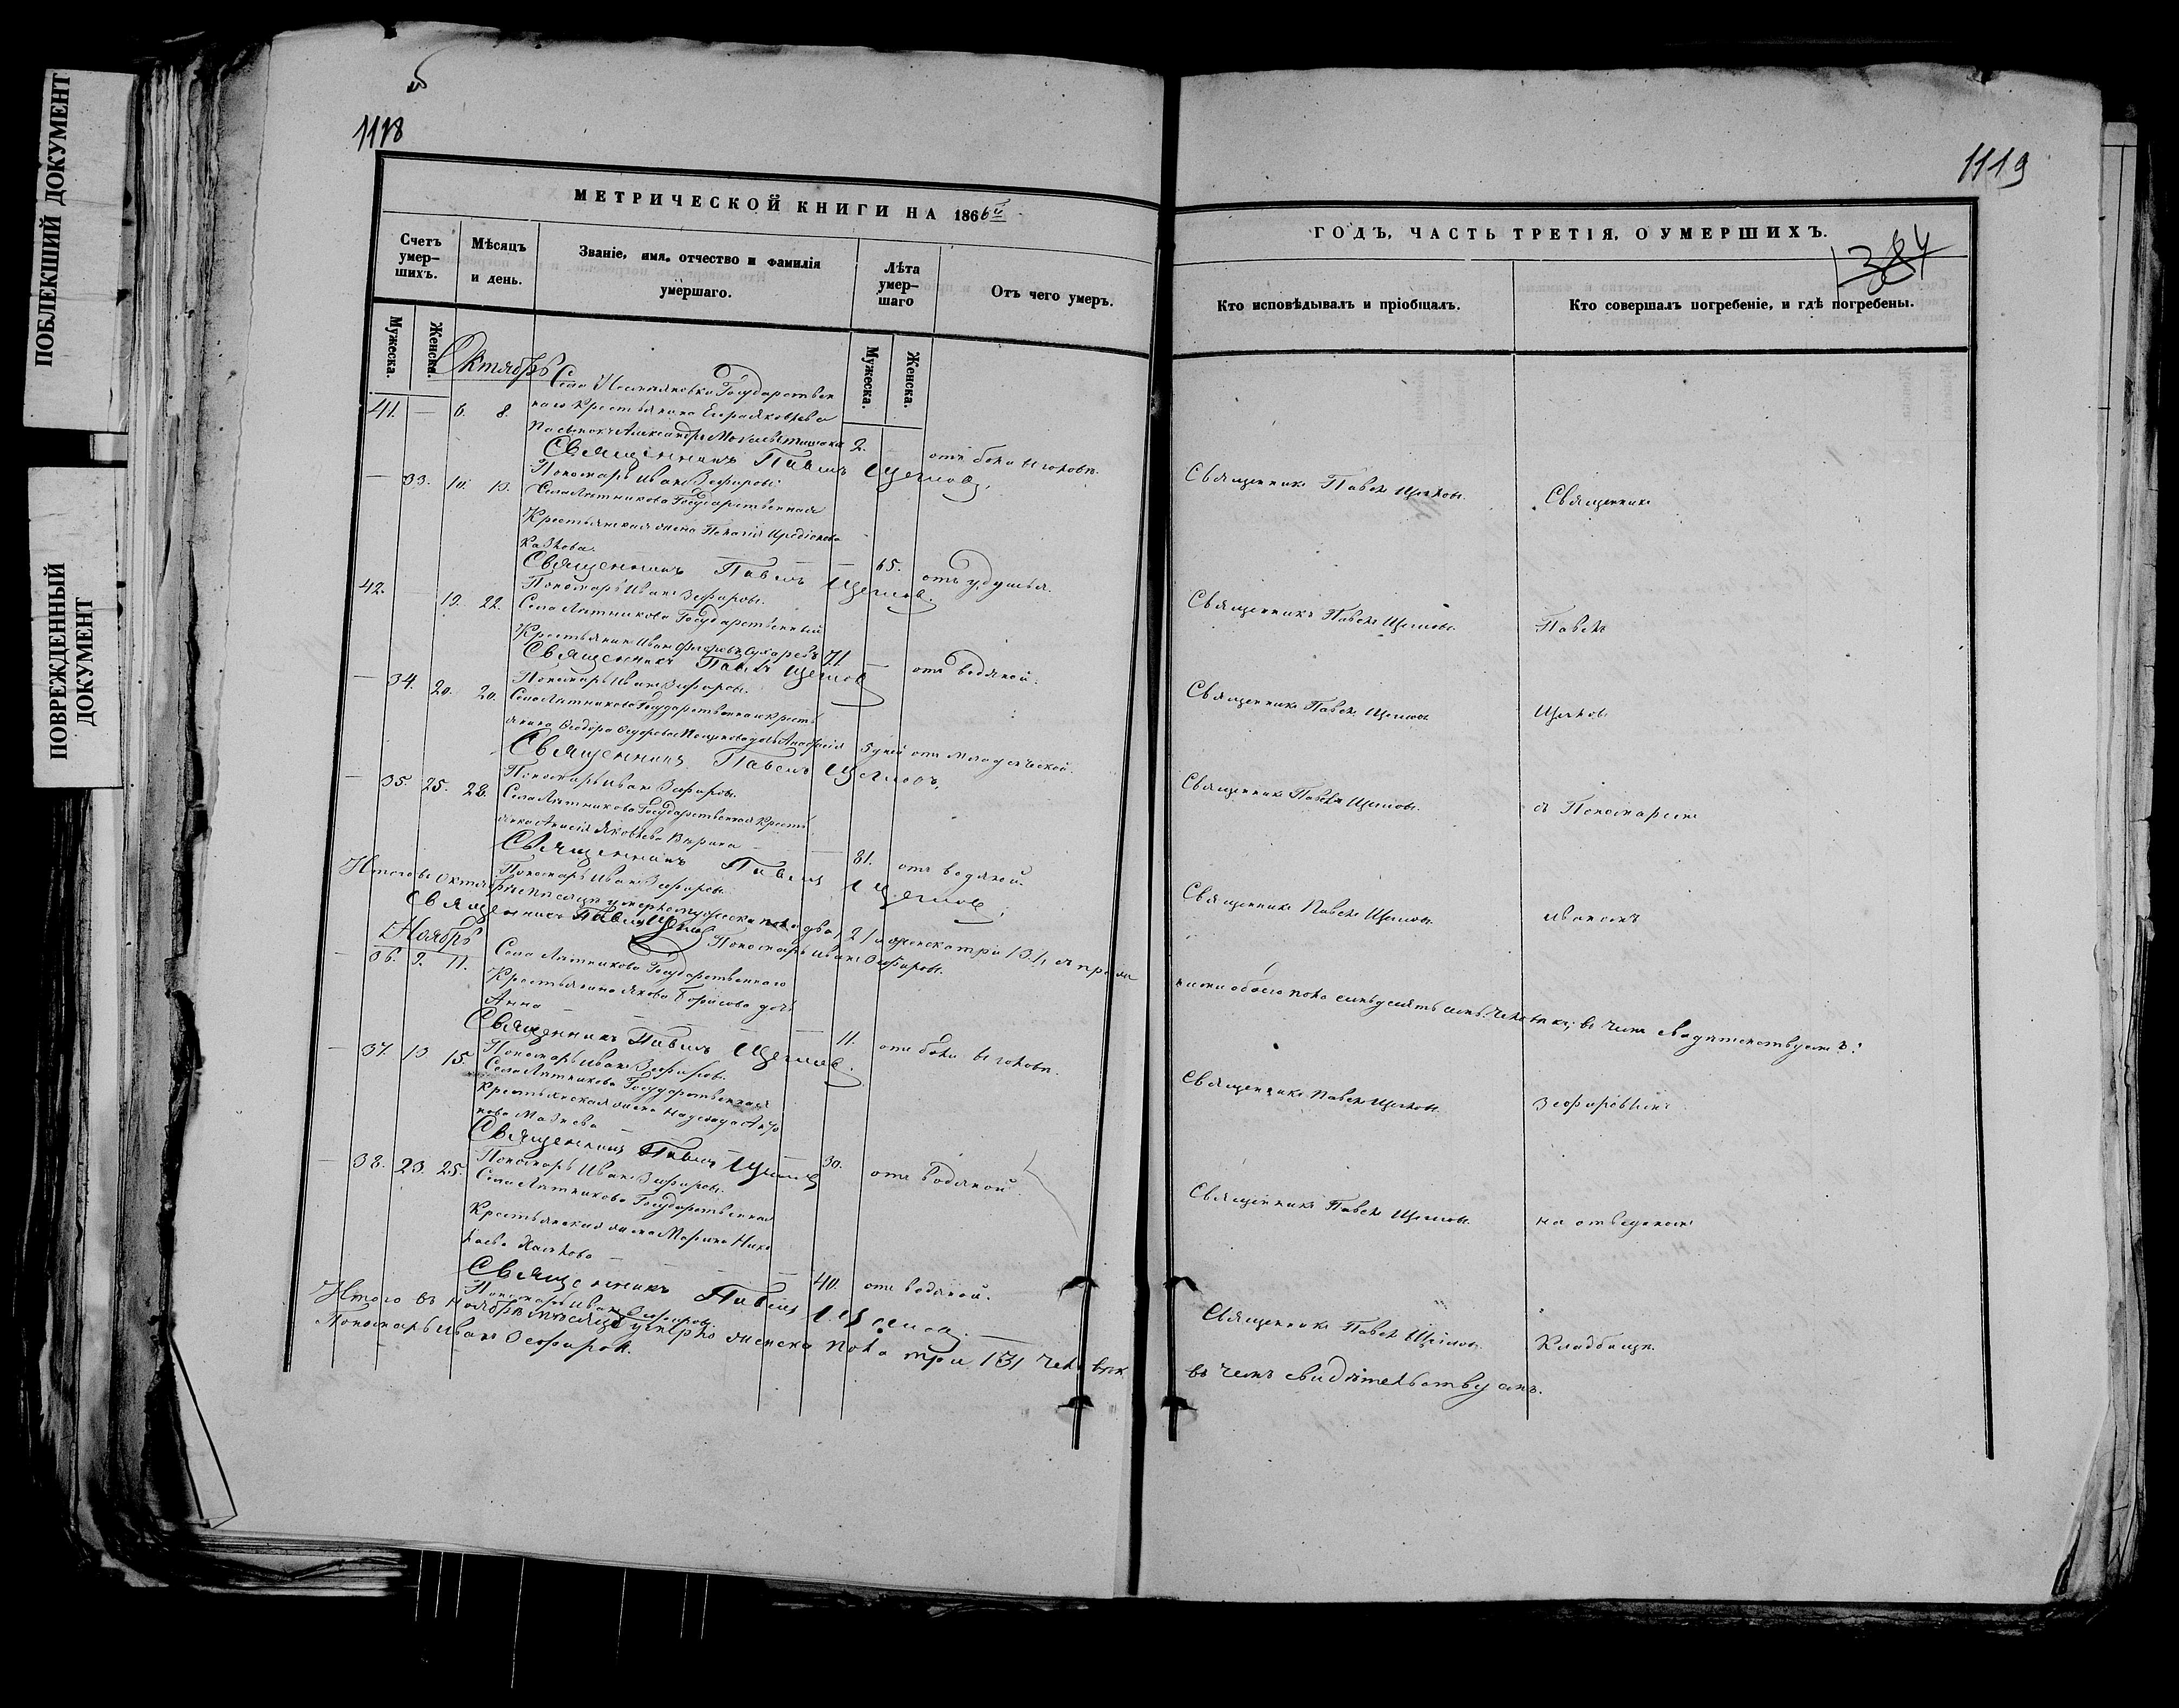 ПОБЛЕКШИЙ ДОКУМЕНТ
ПОВРЕЖДЕННЫЙ
ДОКУМЕНТ
1118
МЕТРИЧЕСКОЙ КНИГИ НА 1866й
Счетъ умер-шихъ.
Мѣсяцъ и день.
Званіе, имя, отчество и фамилія умершаго.
Лѣта умер-шаго
Отъ чего умеръ.
Мужеска.
Женска.
Мужеска.
Женска.
Октябрь
Села Государствен
41. — 6. 8. наго Крестьянина
пасынокъ Александръ 2. отъ боли въ головѣ.
Священникъ Павелъ Щегловъ.
Пономарь Иванъ Зефировъ.
— 33. 10. 13. Села Лѣтникова Государственная
Крестьянская жена
65. отъ удушья.
Священникъ Павелъ Щегловъ.
Пономарь Иванъ Зефировъ.
42. — 19. 22. Села Лѣтникова Государственный
Крестьянин Иванъ 71 — отъ водяной.
Священникъ Павелъ Щегловъ
Пономарь Иванъ Зефировъ.
— 34. 20. 20. Села Лѣтникова Государственнаго Кресть
янина Феодора дочь 5 дней отъ младенческой.
Священникъ Павелъ Щегловъ,
Пономарь Иванъ Зефировъ.
— 35. 25. 28. Села Лѣтникова Государственная Кресть
янка Анисія Яковлева
81. отъ водяной.
Священникъ Павелъ Щегловъ,
Пономарь Иванъ Зефировъ.
Итого въ Октябрѣ мѣсяцѣ умерло мужеска пола два /2/ а женска три /3/, а
Священникъ Павелъ Щегловъ Пономарь Иванъ Зефировъ.
Ноябрь
— 36. 9. 11. Села Лѣтникова Государственнаго
Крестьянина Якова Борисова дочь
Анна — 11. отъ боли въ головѣ.
Священникъ Павелъ Щегловъ.
Пономарь Иванъ Зефировъ.
— 37. 13 15. Села Лѣтникова Государственная
Крестьянская жена Надежда
30. отъ водяной.
Священникъ Павелъ Щегловъ
Пономарь Иванъ Зефировъ.
— 38. 23. 25. Села Лѣтникова Государственная
Крестьянская жена Марина Нико
лаева
40. отъ водяной.
Священникъ Павелъ Щегловъ.
Пономарь Иванъ Зефировъ.
Итого въ Ноябрѣ мѣсяцѣ умерло женска пола три /3/ человѣк
Пономарь Иванъ Зефировъ.
1119
384
ГОДЪ, ЧАСТЬ ТРЕТІЯ, О УМЕРШИХЪ.
Кто исповѣдывалъ и пріобщалъ.
Кто совершалъ погребеніе, и гдѣ погребены.
Священникъ Павелъ Щегловъ. Священникъ
Священникъ Павелъ Щегловъ. Павелъ
Священникъ Павелъ Щегловъ Щегловъ
Священникъ Павелъ Щегловъ. съ Пономаремъ
Священникъ Павелъ Щегловъ. Иваномъ
обоего пола семьдесятъ въ чемъ свидѣтельствуемъ:
Священникъ Павелъ Щегловъ. Зефировымъ
Священникъ Павелъ Щегловъ. на отведеномъ
Священникъ Павелъ Щегловъ. Кладбищѣ.
въ чемъ свидѣтельствуемъ.